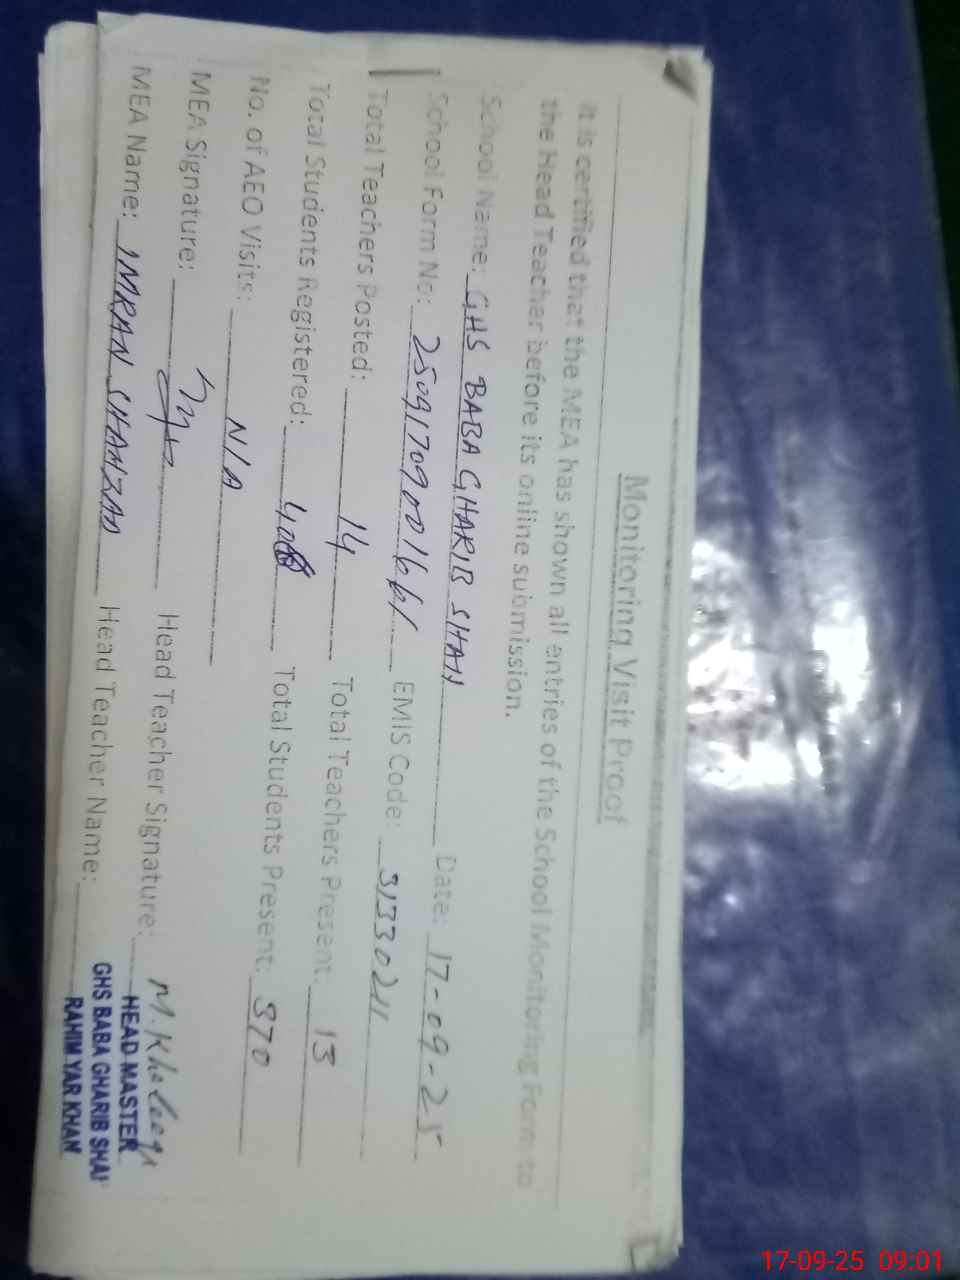 Monitoring Visit Proof
It is certified that the MEA has shown all entries of the School Monitoring Form to
the Head Teacher before its online submission.
School Name: GHS BABA GHARIB SHAH Date: 17-09-25
School Form No: 25091709001661 EMIS Code: 31330211
Total Teachers Posted: 14 Total Teachers Present: 13
Total Students Registered: Total Students Present: 370
No. of AEO Visits: N/A
MEA Signature: Head Teacher Signature: M. Khaleeq
MEA Name: IMRAN SHAHZAD Head Teacher Name:
HEAD MASTER
GHS BABA GHARIB SHAH
RAHIM YAR KHAN
17-09-25 09:01